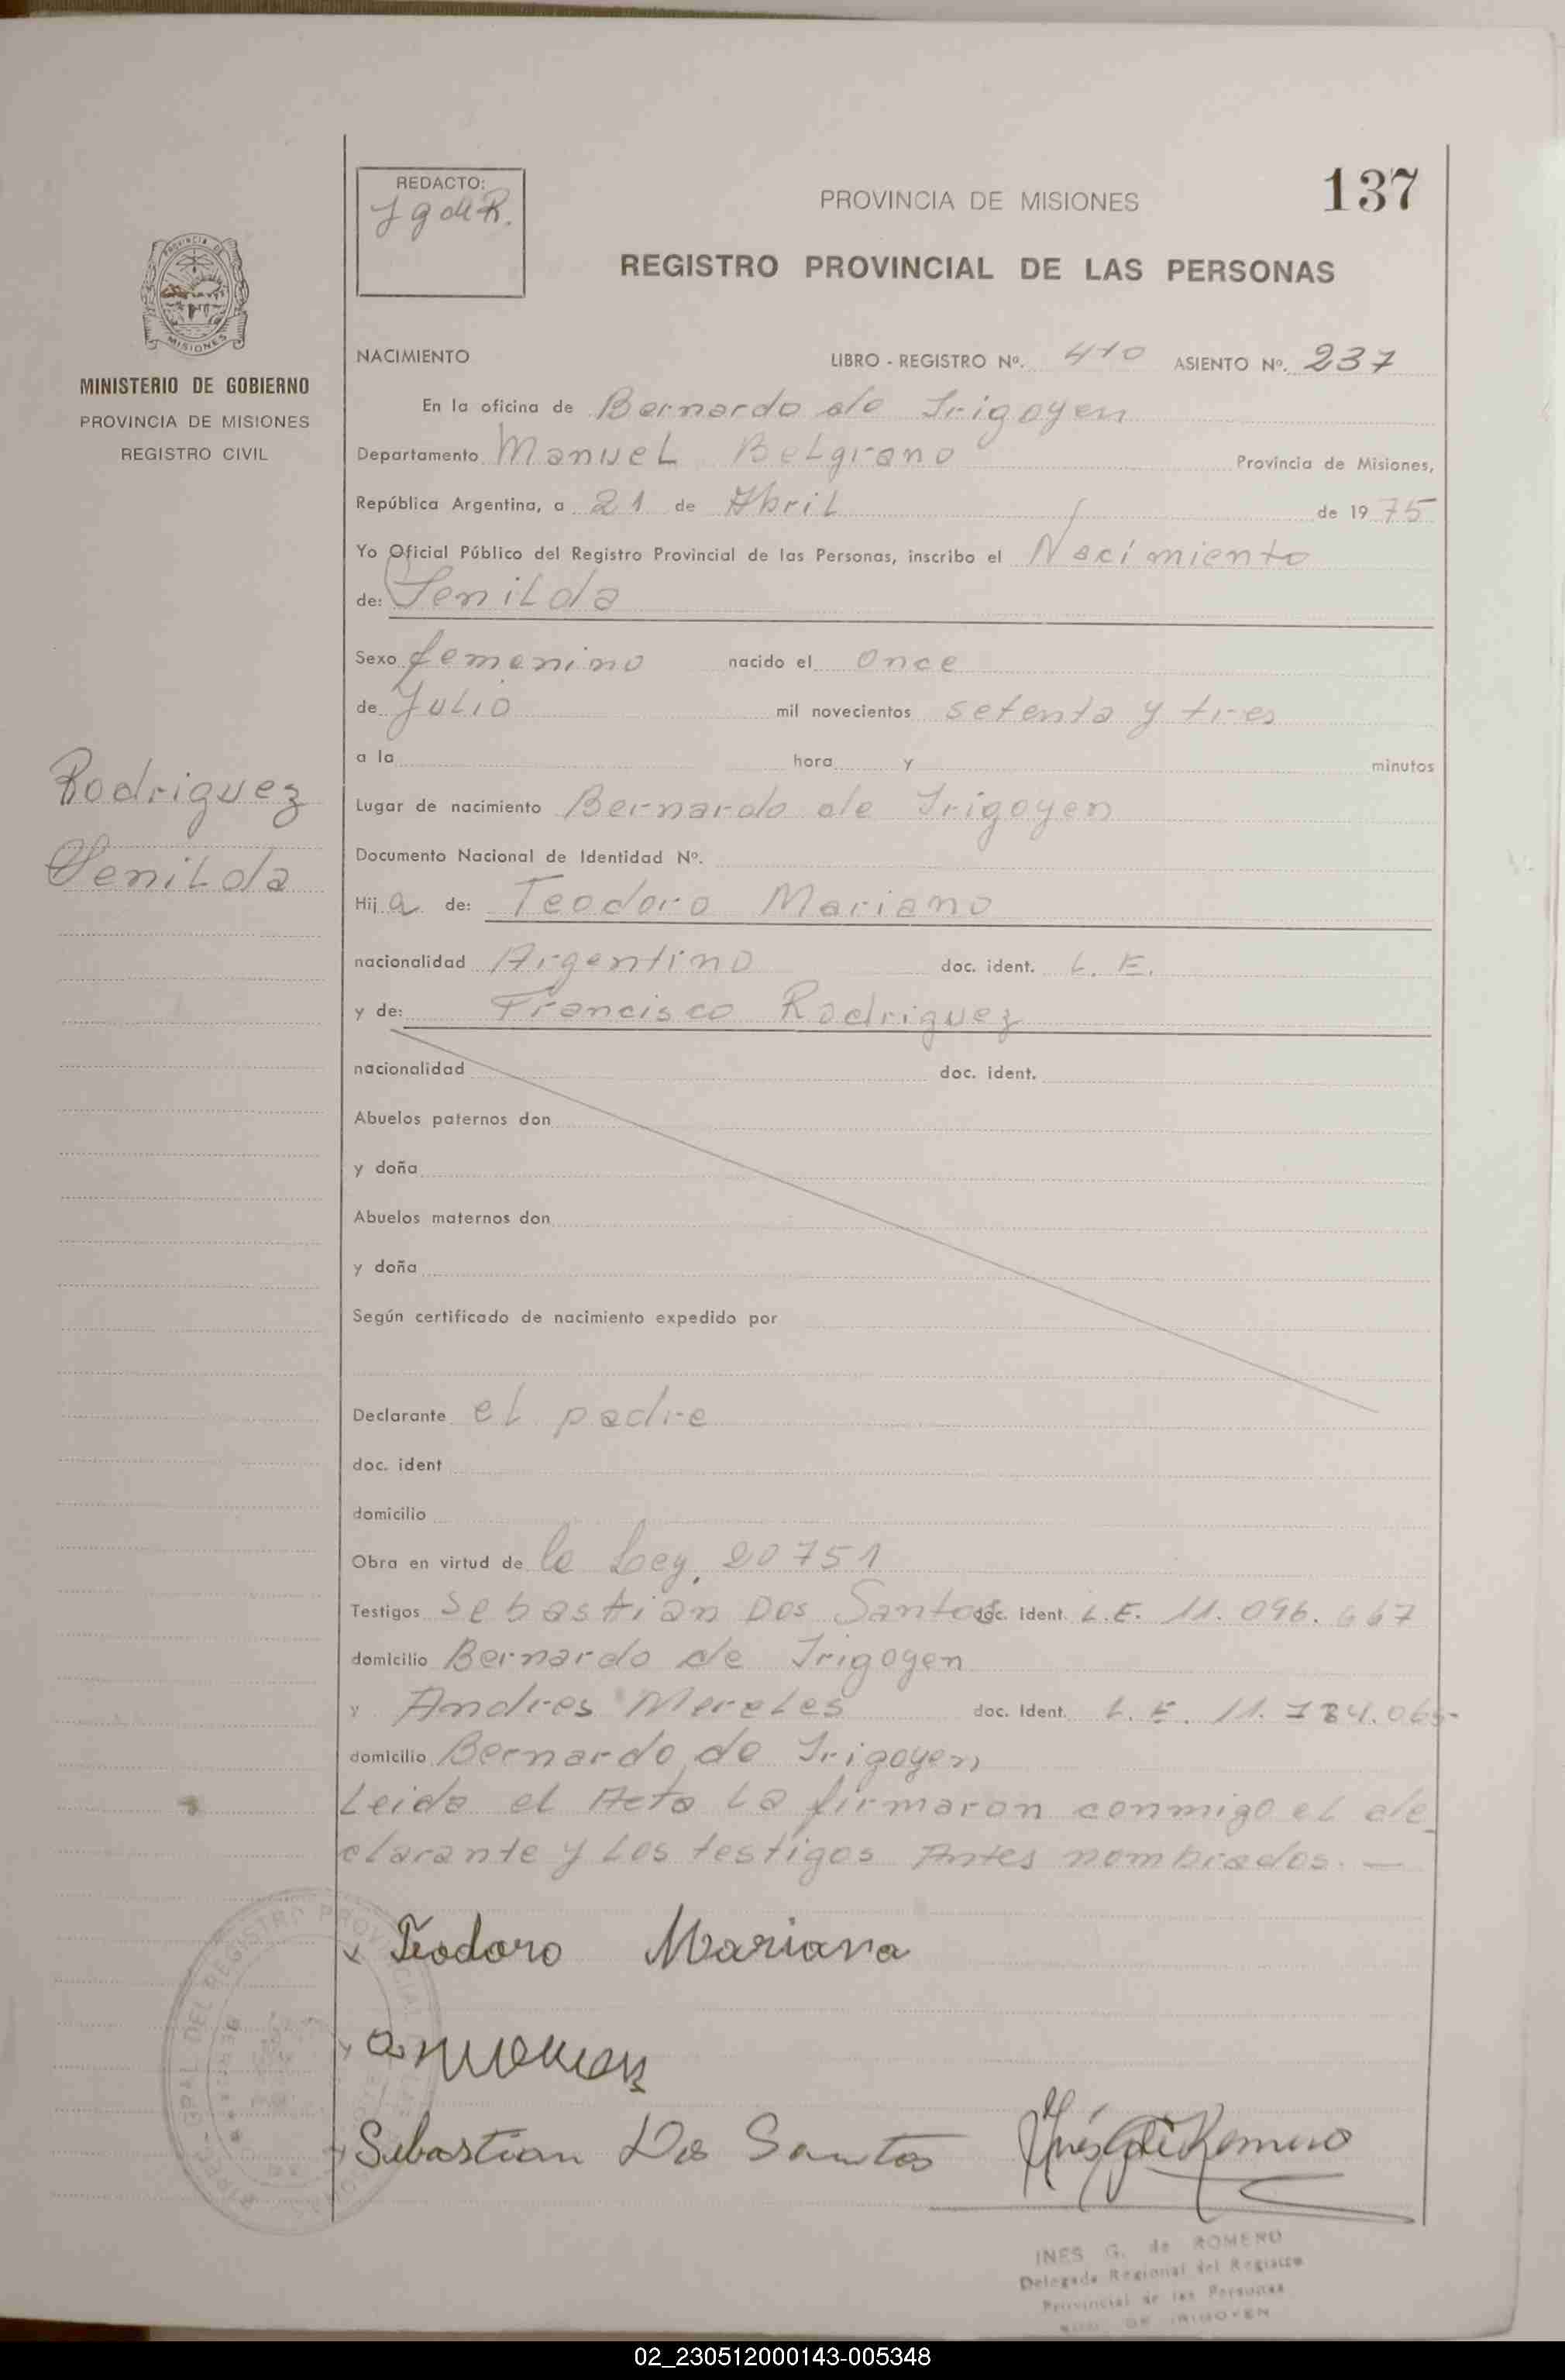 REDACTO:
J g de R.
PROVINCIA DE MISIONES
137
REGISTRO PROVINCIAL DE LAS PERSONAS
PROVINCIA DE
MISIONES
MINISTERIO DE GOBIERNO
PROVINCIA DE MISIONES
REGISTRO CIVIL
NACIMIENTO LIBRO - REGISTRO Nº. 410 ASIENTO Nº. 237
En la oficina de Bernardo de Irigoyen
Departamento Manuel Belgrano Provincia de Misiones,
República Argentina, a 21 de Abril de 1975
Yo Oficial Público del Registro Provincial de las Personas, inscribo el Nacimiento
de: Senilda
Sexo femenino nacido el once
de Julio mil novecientos setenta y tres
a la hora y minutos
Rodriguez
Senilda
Lugar de nacimiento Bernardo de Irigoyen
Documento Nacional de Identidad Nº.
Hija de: Teodoro Mariano
nacionalidad Argentino doc. ident. L. E.
y de: Francisco Rodriguez
nacionalidad doc. ident.
Abuelos paternos don
y doña
Abuelos maternos don
y doña
Según certificado de nacimiento expedido por
Declarante el padre
doc. ident
domicilio
Obra en virtud de la Ley. 20751
Testigos Sebastian Dos Santos doc. Ident. L.E. 11.096.667
domicilio Bernardo de Irigoyen
y Andres Mereles doc. Ident. L.E. 11.784.065-
domicilio Bernardo de Irigoyen
Leida el Acta la firmaron conmigo el de_
clarante y los testigos Antes nombrados. —
x Teodoro Mariana
Sebastian Dos Santos
Inés G de Romero
INES G. de ROMERO
Delegada Regional del Registro
Provincial de las Personas
DE IRIGOYEN
02_230512000143-005348